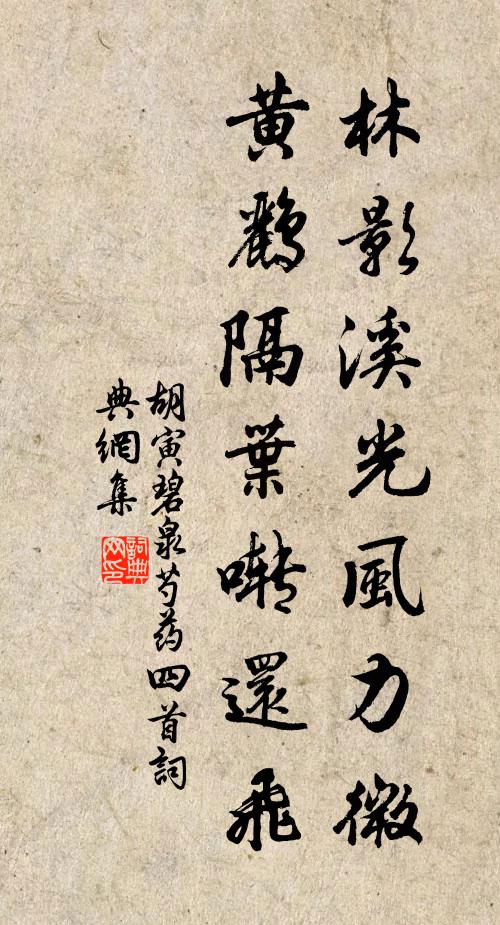 林影溪光風力微
黃鸝隔葉囀還飛
胡寅碧泉芍药四首詞
典網集
詞典网印